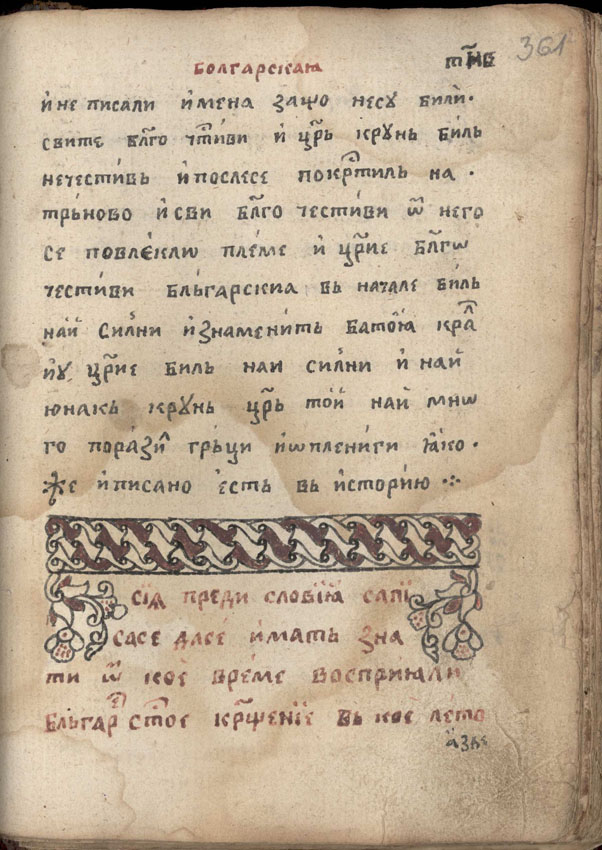 болгарскаꙗ
тн҃в 361
и҆ не писали и҆мена защо несу били·
свите бл҃го чт҇иви и҆ цр҃ь крунь биль
нечестивь и҆ послесе покрт҇иль на ·
трьново и҆ сви бл҃го честиви ѿ него
се повлеклѡ племе и҆ цр҃ие бл҃гѡ
честиви бльгарскиа вь начале биль
наи҆ силни и҆ знаменить батоꙗ крал
и҆у цр҃ие биль наи силни и҆ наи
юнакь крунь цр҃ь тои҆ наи мнѡ
го поразил грьци и҆ ѡплениги ꙗко·
же и҆ писано есть вь и҆сторию ⁘
сїѧ преди словїꙗ сапї
сасе далее и҆мать зна
ти ѿ кое време восприꙗли
бльгар ст҃ое крщ҃енїе вь кое лето